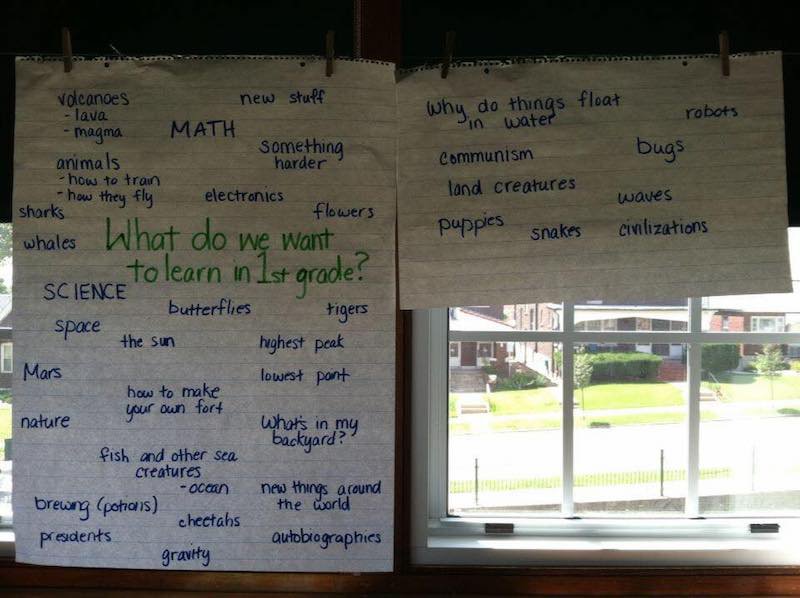 volcanoes
- lava
- magma
new stuff
MATH
something
harder
animals
- how to train
- how they fly
electronics
sharks
flowers
whales
What do we want
to learn in 1st grade?
SCIENCE
butterflies
tigers
space
the sun
highest peak
Mars
lowest point
how to make
your own fort
nature
What's in my
backyard?
fish and other sea
creatures
- ocean
new things around
the world
brewing (potions)
cheetahs
presidents
autobiographies
gravity
Why do things float
in water
robots
communism
bugs
land creatures
waves
puppies
snakes
civilizations